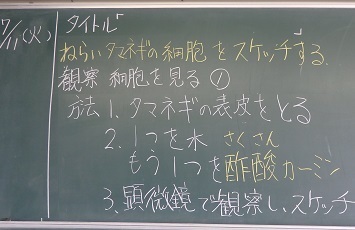 7/11(火) タイトル「
ねらい タマネギの細胞をスケッチする。
観察 細胞を見る①
方法 1. タマネギの表皮をとる
2. 1つを水 さくさん
もう1つを酢酸カーミン
3. 顕微鏡で観察し、スケッチ